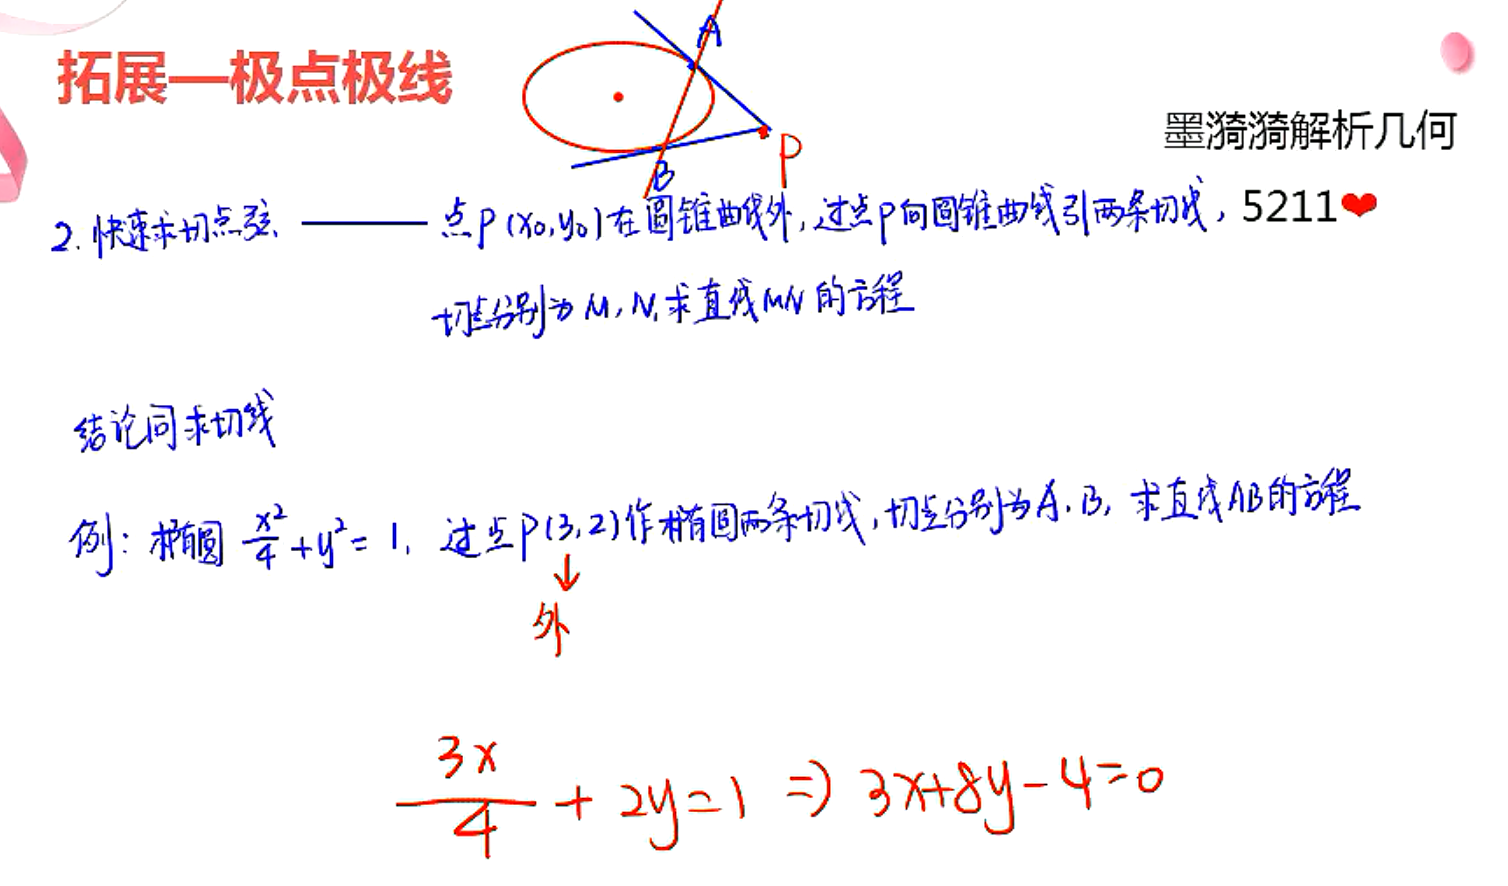 拓展—极点极线
A
P
B
墨漪漪解析几何
2. 快速求切点弦 —— 点P(x₀,y₀)在圆锥曲线外,过点P向圆锥曲线引两条切线,
5211❤
切点分别为M,N,求直线MN的方程
结论同求切线
例: 椭圆 x²/4 + y² = 1, 过点P(3,2)作椭圆两条切线,切点分别为A,B,求直线AB的方程
↓
外
3x/4 + 2y = 1 ⇒ 3x+8y-4=0